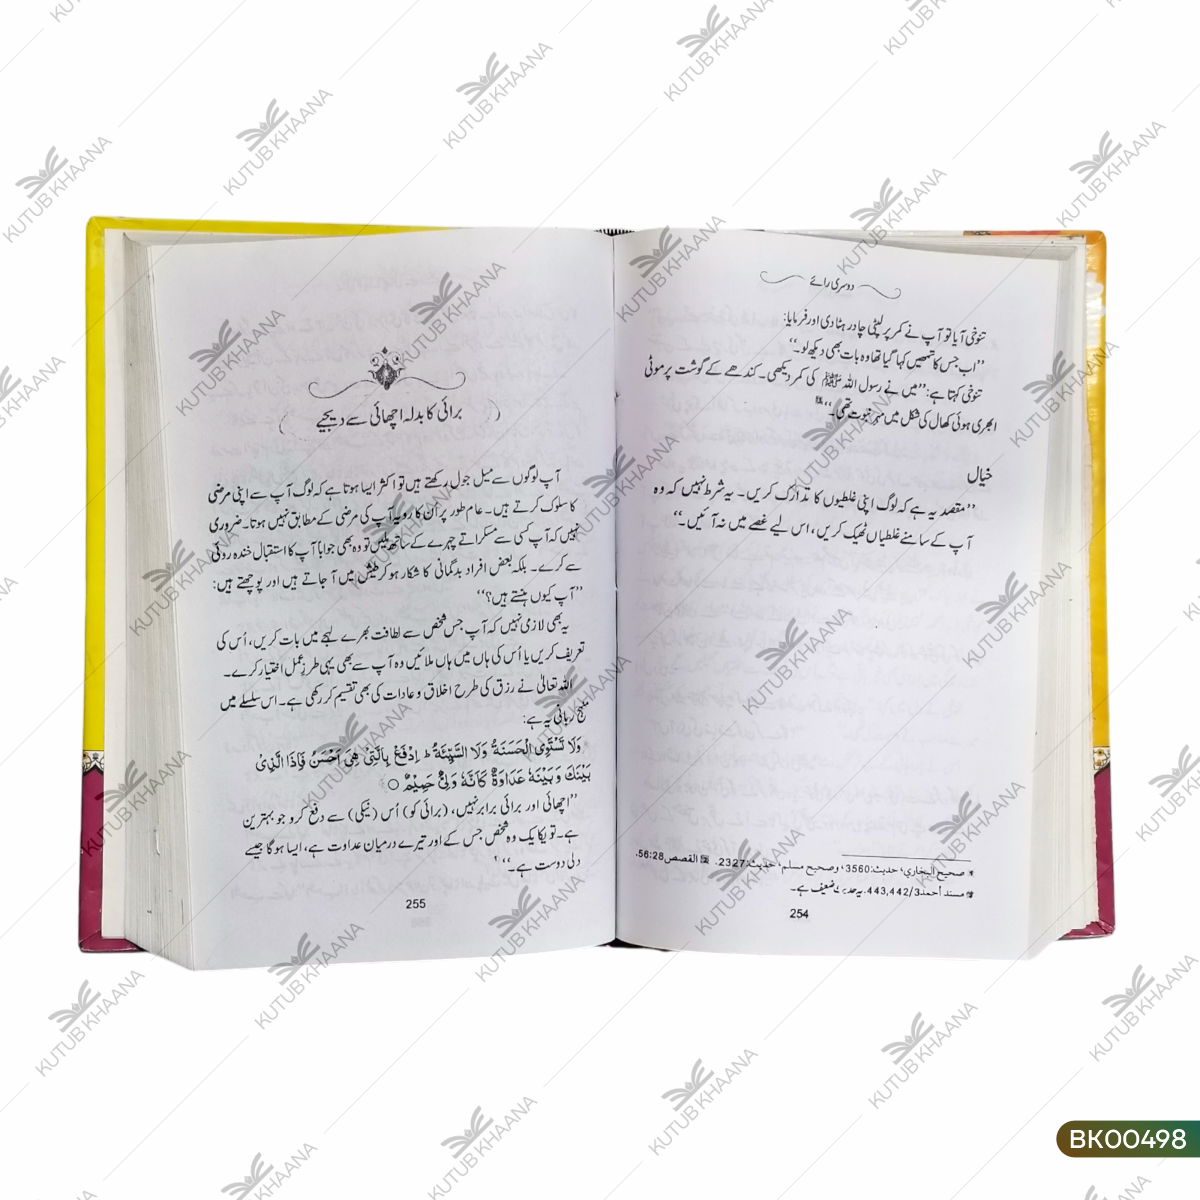 دوسری رائے
تنوخی آیا تو آپ نے کمر پر لپٹی چادر ہٹا دی اور فرمایا:
”اب جس کا تمھیں کہا گیا تھا وہ بات بھی دیکھ لو۔“
تنوخی کہتا ہے: ”میں نے رسول اللہ ﷺ کی کمر دیکھی۔ کندھے کے گوشت پر موٹی
ابھری ہوئی کھال کی شکل میں مہر نبوت تھی۔“
خیال
”مقصد یہ ہے کہ لوگ اپنی غلطیوں کا تدارک کریں۔ یہ شرط نہیں کہ وہ
آپ کے سامنے غلطیاں ٹھیک کریں، اس لیے غصے میں نہ آئیں۔“
صحيح البخاري، حديث:3560، وصحيح مسلم، حديث:2327. القصص 56:28.
مسند أحمد:3/443,442. یہ حدیث ضعیف ہے۔
254
برائی کا بدلہ اچھائی سے دیجیے
آپ لوگوں سے میل جول رکھتے ہیں تو اکثر ایسا ہوتا ہے کہ لوگ آپ سے اپنی مرضی
کا سلوک کرتے ہیں۔ عام طور پر اُن کا رویہ آپ کی مرضی کے مطابق نہیں ہوتا۔ ضروری
نہیں کہ آپ کسی سے مسکراتے چہرے کے ساتھ ملیں تو وہ بھی جواباً آپ کا استقبال خندہ روئی
سے کرے۔ بلکہ بعض افراد بدگمانی کا شکار ہو کر طیش میں آ جاتے ہیں اور پوچھتے ہیں:
”آپ کیوں ہنستے ہیں؟“
یہ بھی لازمی نہیں کہ آپ جس شخص سے لطافت بھرے لہجے میں بات کریں، اُس کی
تعریف کریں یا اُس کی ہاں میں ہاں ملائیں وہ آپ سے بھی یہی طرزِ عمل اختیار کرے۔
اللہ تعالیٰ نے رزق کی طرح اخلاق و عادات کی بھی تقسیم کر رکھی ہے۔ اس سلسلے میں
منہج ربانی یہ ہے:
وَلَا تَسْتَوِى الْحَسَنَةُ وَلَا السَّيِّئَةُ ؕ اِدْفَعْ بِالَّتِىْ هِىَ اَحْسَنُ فَاِذَا الَّذِىْ
بَيْنَكَ وَبَيْنَهٗ عَدَاوَةٌ كَاَنَّهٗ وَلِىٌّ حَمِيْمٌ ○
”اچھائی اور برائی برابر نہیں، (برائی کو) اُس (نیکی) سے دفع کرو جو بہترین
ہے۔ تو یکایک وہ شخص جس کے اور تیرے درمیان عداوت ہے، ایسا ہوگا جیسے
دلی دوست ہے۔“
255
KUTUB KHAANA
BK00498